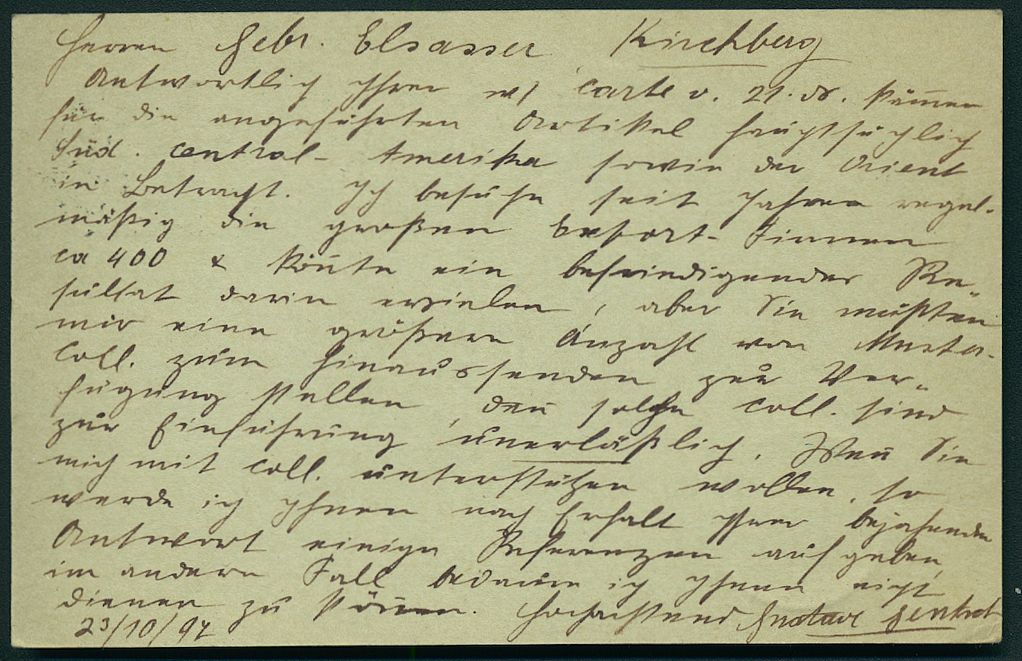 Herren Gebr. Elsasser Kirchberg
Antwortlich Ihrer w/ Carte v. 21. ds. kämen
für die angeführten Artikel hauptsächlich
Süd. Central- Amerika sowie der Orient
in Betracht. Ich besuche seit Jahren regel-
mäßig die großen Export-Firmen
ca 400 & könte ein befriedigendes Re-
sultat darin erzielen, aber Sie müßten
mir eine größere Anzahl von Muster-
Coll. zum hinaussenden zur Ver-
fügung stellen, den solche Coll. sind
zur Einführung unerläßlich. Wen Sie
mich mit Coll. unterstützen wollen, so
werde ich Ihnen nach Erhalt Ihrer bejahenden
Antwort einige Referenzen aufgeben,
im andern Fall bedaure ich Ihnen nicht
dienen zu können. Hochachtend Gustav
23/10/94